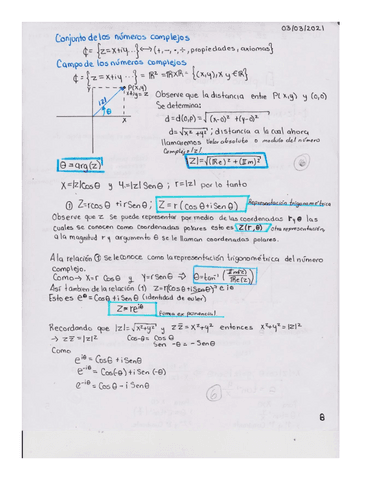 03/03/2021
Conjunto de los números complejos
ℂ = {z=x+iy...} ⟷ (+, -, •, ÷, propiedades, axiomas)
Campo de los números complejos
ℂ = {z=x+iy...} = ℝ² = ℝxℝ = {(x,y); x y y ∈ ℝ}
y
P(x,y)
x+iy=z
|z|
θ
x
Observe que la distancia entre P(x,y) y (0,0)
Se determina:
d=d(0,P)=√(x-0)² + (y-0)²
d=√x²+y² ; distancia a la cual ahora
llamaremos Valor absoluto o modulo del número
Complejo |z|
θ=arg(z)
|z|=√(Re)²+(Im)²
x=|z|cosθ y y=|z|Senθ ; r=|z| por lo tanto
① Z=rcosθ +irSenθ ; Z=r(cosθ+iSenθ) Representación trigonométrica
Observe que z Se puede representar por medio de las coordenadas r y θ las
cuales se conocen como Coordenadas polares esto es Z(r,θ) otra representación
a la magnitud r y argumento θ se le llaman coordenadas polares.
A la relación ① Se le conoce como la representación trigonométrica del número
complejo.
Como → x=r cosθ y Y=rsenθ ⇒ θ=tan⁻¹(Im(z)/Re(z))
Así también de la relación (1) Z=r(cosθ+iSenθ)
Esto es e^iθ=Cosθ+iSenθ (identidad de euler)
Z=re^iθ forma exponencial
Recordando que |z|=√x²+y² y z z̄=x²+y² entonces x²+y²=|z|²
→ z z̄=|z|² Cos-θ= Cosθ
Sen -θ= -Senθ
Como
e^iθ=Cosθ+iSenθ
e^-iθ=Cos(-θ)+iSen(-θ)
e^-iθ=Cosθ-iSenθ
8